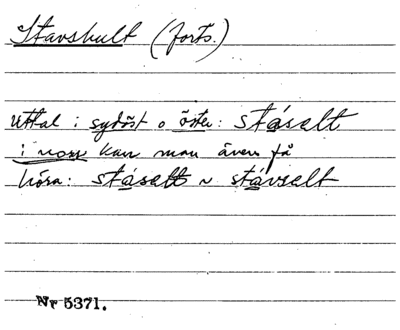 Stavshult (forts.)
Uttal i sydöst o öster: stáselt
i norr kan man även få
höra: stáselt ~ stávselt
Nr 5371.